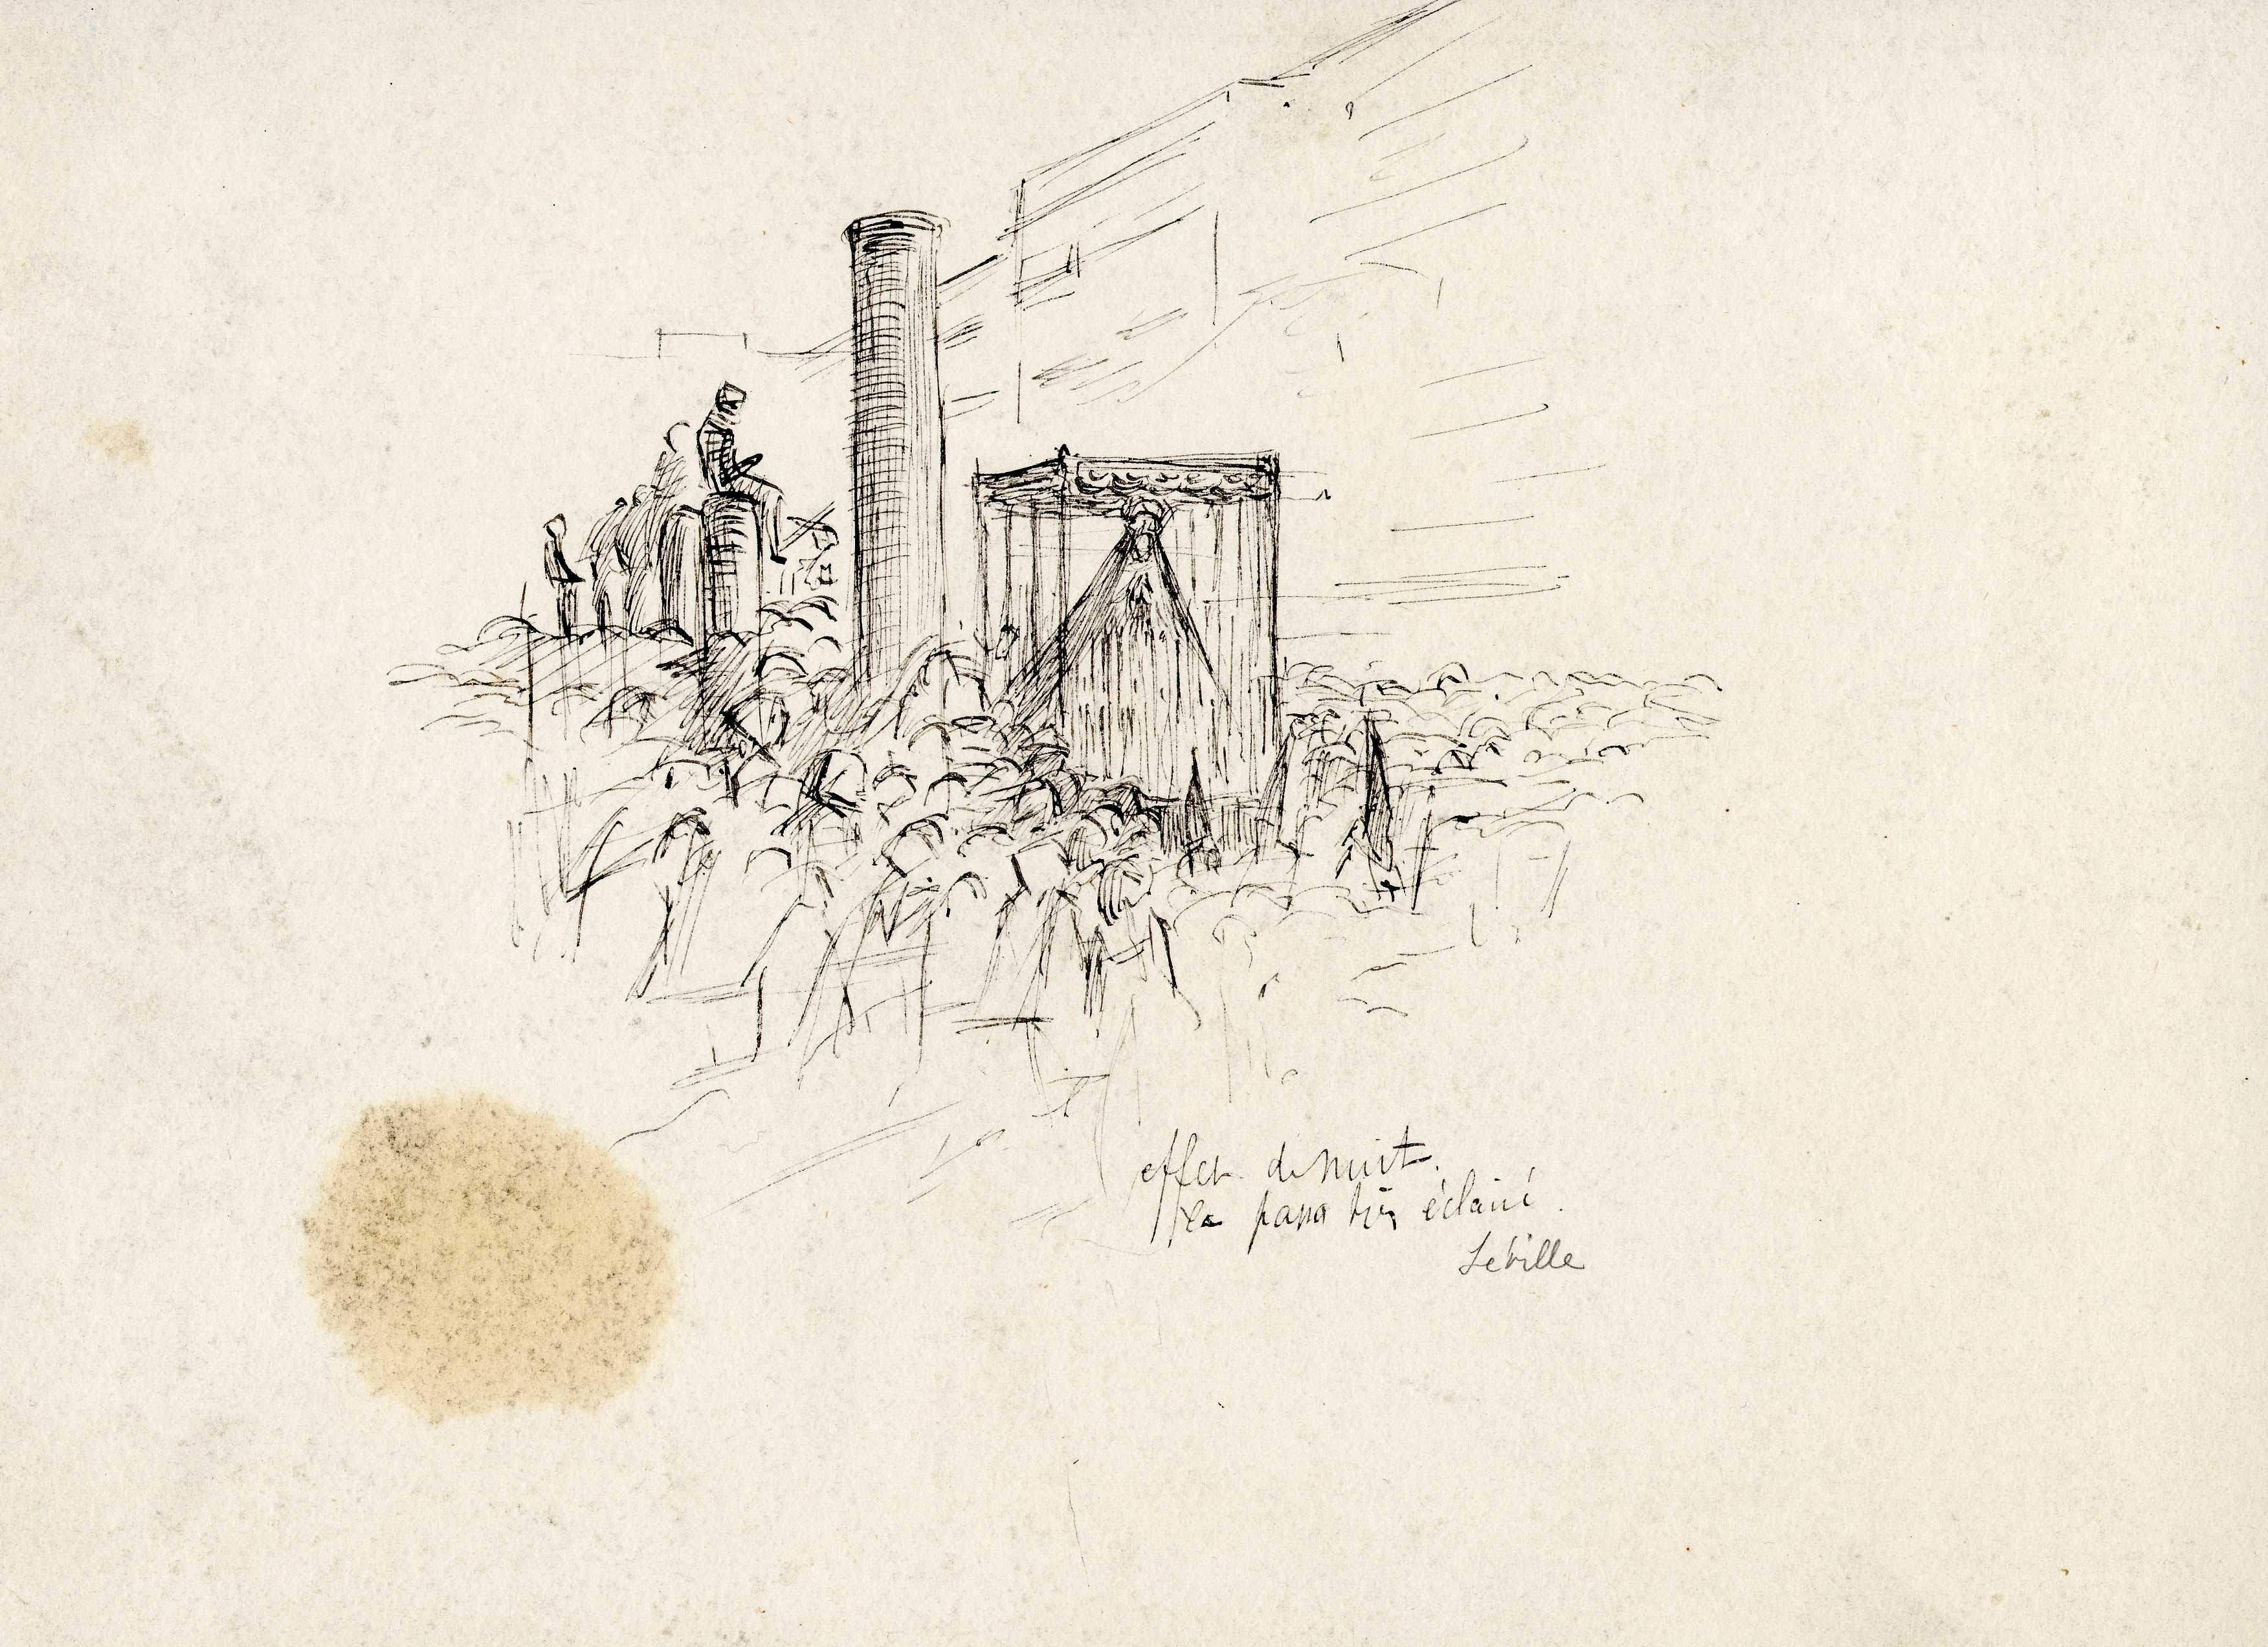 effet de nuit.
le paso très éclairé.
Seville